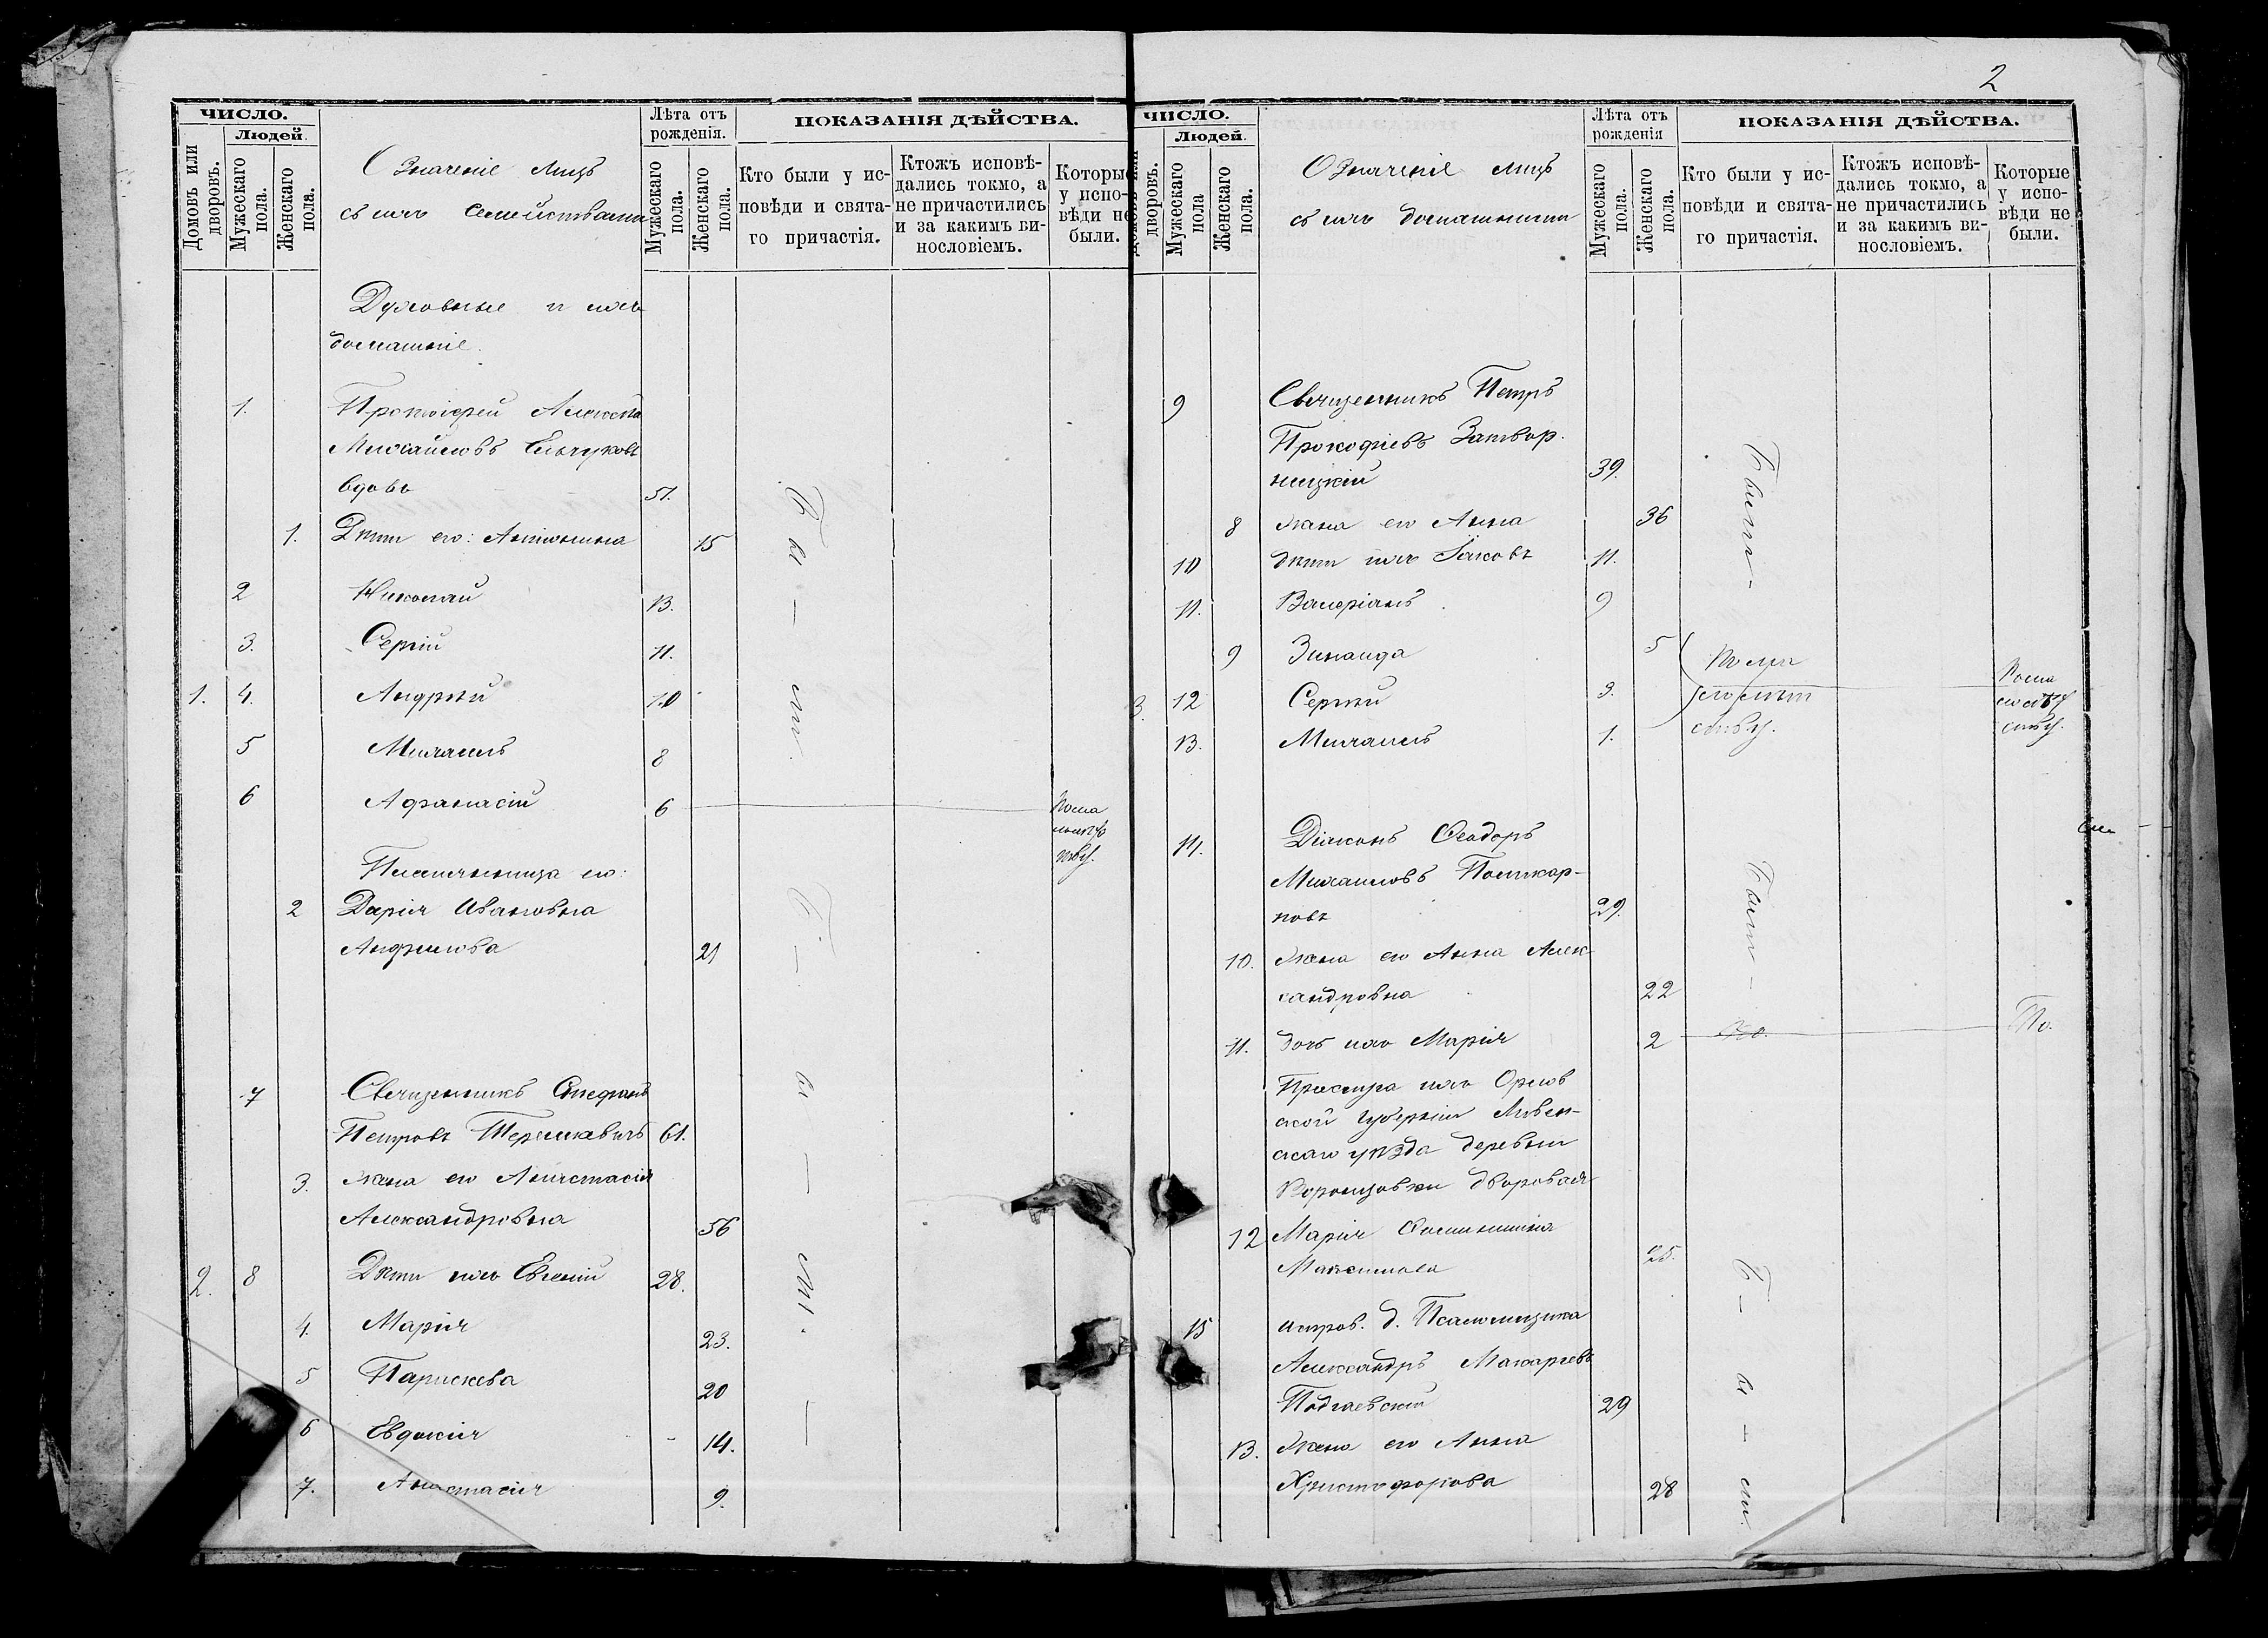 ЧИСЛО.
Людей.
Домовъ или дворовъ.
Мужескаго пола.
Женскаго пола.
Означеніе Лицъ
съ ихъ Семействами
Лѣта отъ рожденія.
Мужескаго пола.
Женскаго пола.
ПОКАЗАНІЯ ДѢЙСТВА.
Кто были у ис-
повѣди и свята-
го причастія.
Ктожъ исповѣ-
дались токмо, а
не причастились
и за какимъ ви-
нословіемъ.
Которые
у испо-
вѣди не
были.
Духовные и ихъ
домашніе.
1. Протоіерей Алексѣй
Михайловъ
вдовъ 51.
1. Дѣти его: Антонина 15
2 Николай 13.
3. Сергій 11.
1. 4. Андрей 10
5 Михаилъ 8
6 Афанасій 6 По ма
лолѣт
ству.
Племянница его:
2 Дарія Ивановна
Анфилова 21
Бы — ли.
7 Священникъ Стефанъ
Петровъ 61.
3. жена его Анастасія
Александровна 56
2. 8 Дѣти ихъ Евгеній 28.
4. Марія 23.
5 Параскева 20
6 Евдокія 14.
7. Анастасія 9.
Б — ы — ли. —
2
ЧИСЛО.
Людей.
Домовъ или дворовъ.
Мужескаго пола
Женскаго пола.
Означеніе лицъ
съ ихъ домашними
Лѣта отъ рожденія
Мужескаго пола.
Женскаго пола.
ПОКАЗАНІЯ ДѢЙСТВА.
Кто были у ис-
повѣди и свята-
го причастія.
Ктожъ исповѣ-
дались токмо, а
не причастились
и за какимъ ви-
нословіемъ.
Которые
у испо-
вѣди не
были.
9 Священникъ Петръ
Прокофіевъ Затвор-
ницкій 39.
8 жена его Анна 36
10 дѣти ихъ Іаковъ 11.
11. Валеріанъ 9
Были —
9 Зинаида 5
3. 12 Сергѣй 3.
13. Михаилъ 1.
По ма
лолѣт
ству.
По ма
лолѣт
ству.
14. Діаконъ Ѳеодоръ
Михаиловъ Поликар-
повъ 29.
10. жена его Анна Алек-
сандровна 22
Были —
11. дочь ихъ Марія 2 То.
Прислуга ихъ Орлов
ской губерніи Ливен-
скаго уѣзда деревни
Воронцовки дворовая
12 Марія
Максимова 25.
15 испр. д. Псаломщика
Александръ Макарьевъ
Подгаевскій 29
13. Жена его Анна
Христофорова 28
Б — ы — ли